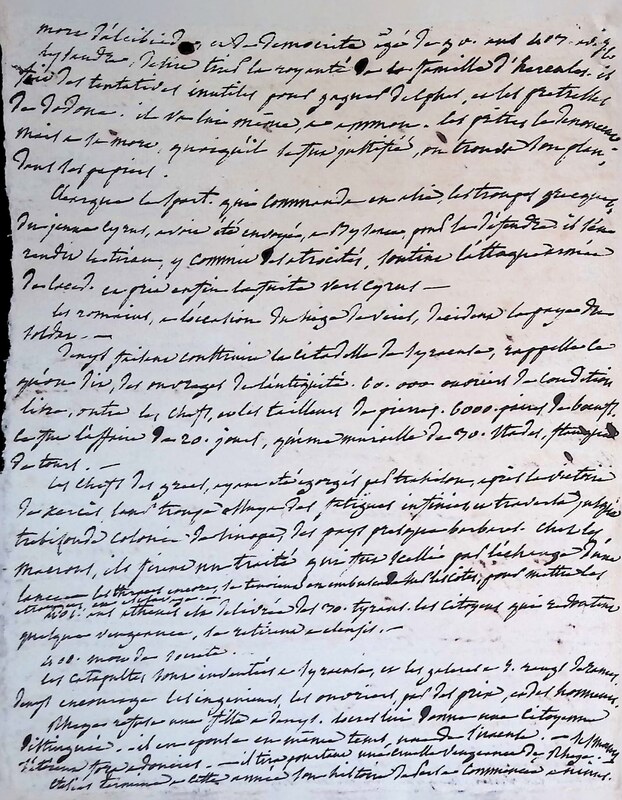 mort d'alcibiade, et de democrite âgé de 90. ans 407.
lysandre, desire tirer la royauté de la famille d'hercules. il
fait des tentatives inutiles pour gagner delphes, et les prêtresses
de dodone. il va lui même, a ammon. les prêtres le denoncent
mais a sa mort, quoiqu'il se fut justifié, on trouva son plan,
dans ses papiers.
Clearque le spart. qui commanda en asie, les troupes grecques
du jeune Cyrus, avoit été envoyé, a Bysance, pour la défendre. il s'en
rendit le tiran, y commit des atrocités, soutint l'attaque armée
de laced. et prit enfin la fuite vers Cyrus —
les romains, a l'occasion du siege de veies, decident la paye des
soldes. —
Denys faisant construire la citadelle de syracuse, rappelle ce
qu'on dit, des ouvrages de l'antiquité. 60.000 ouvriers de condition
libre, outre les chefs, et les tailleurs de pierres. 6000. paires de boeufs.
ce fut l'affaire de 20. jours, qu'une muraille de 30. stades,
de tours. —
les chefs des grecs, ayant été égorgés par trahison, après la victoire
de xercès, leur troupe essuya des fatigues infinies en traversant, jusqu'à
trebisonde colonie de sinope, des pays presque barbares. chez les
macrons, ils firent un traité qui fut scellé par l'échange d'une
lance — les thraces encore, se tenoient en embuscade sur les côtes, pour mettre les
etrangers en esclavage. —
401. ans athenes est delivrée des 30. tyrans. les citoyens qui redoutent
quelque vengeance, se retirent a eleusis. —
400. mort de socrate.
les catapultes, sont inventées a syracuse, et les galeres a 5. rangs de rames,
denys encourage les ingenieurs, les ouvriers, par des prix, et des honneurs.
Rhege refuse une fille a denys. locres lui donne une citoyenne
distinguée. il en epouse en même tems, une de siracuse. —
— il tira pourtant une cruelle vengeance de Rhege. —
ctesias termine a cette année son histoire de perse commencée a ninus.